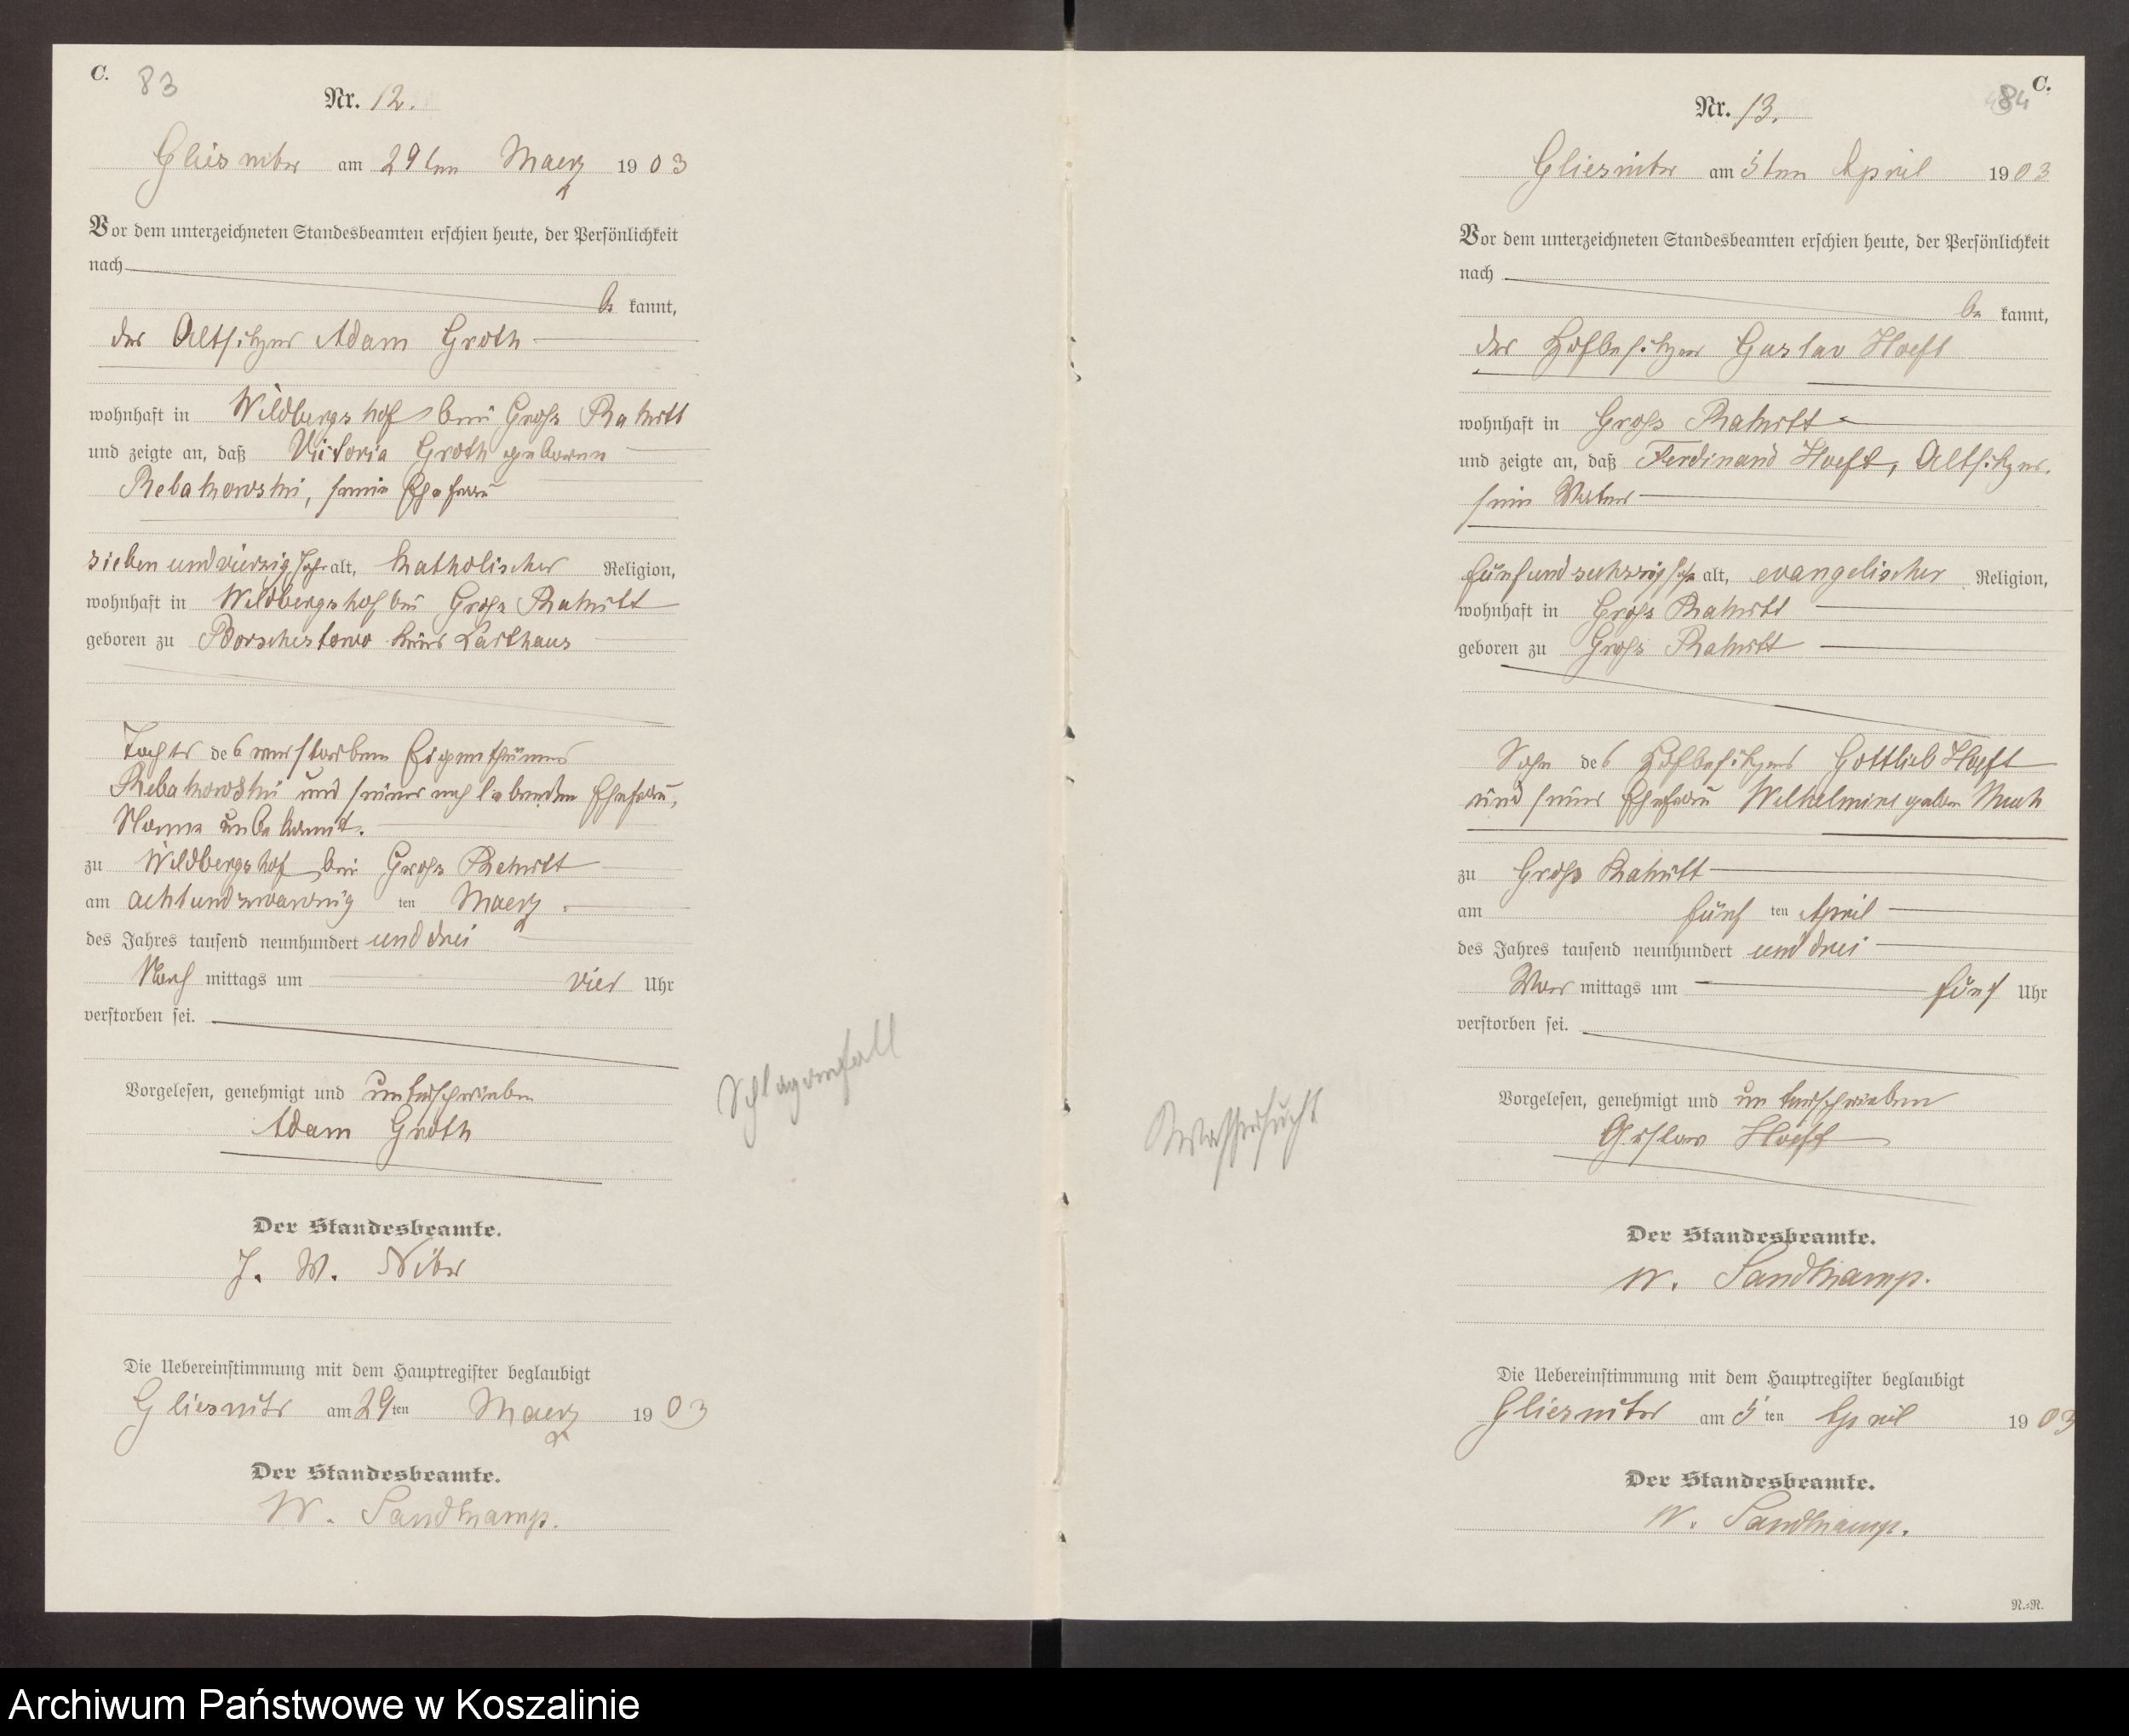 C. 83
Nr. 12.
am 29ten Maerz 1903
Vor dem unterzeichneten Standesbeamten erschien heute, der Persönlichkeit
nach
be kannt,
der Altsitzer Adam Groth
wohnhaft in Wildbergshof bei Groß Rakitt
und zeigte an, daß Victoria Groth geborene
Rebakowski, seine Ehefrau
sieben und vierzig Jahr alt, katholischer Religion,
wohnhaft in Wildbergshof bei Groß Rakitt
geboren zu Borschestowo Kreis Carthaus
Tochter des verstorbenen Eigenthümers
Rebakowski und seiner noch lebenden Ehefrau,
Name unbekannt.
zu Wildbergshof bei Groß Rakitt
am acht und zwanzig ten Maerz
des Jahres tausend neunhundert und drei
Nach mittags um vier Uhr
verstorben sei.
Vorgelesen, genehmigt und unterschrieben
Adam Groth
Der Standesbeamte.
J. W.
Die Uebereinstimmung mit dem Hauptregister beglaubigt
am 29ten Maerz 1903
Der Standesbeamte.
W. Sandkamp.
Schlaganfall
C.
84
Nr. 13.
am 5ten April 1903
Vor dem unterzeichneten Standesbeamten erschien heute, der Persönlichkeit
nach
be kannt,
der Hofbesitzer Gustav Hoeft
wohnhaft in Groß Rakitt
und zeigte an, daß Ferdinand Hoeft, Altsitzer,
sein Vater
fünf und sechszig Jahr alt, evangelischer Religion,
wohnhaft in Groß Rakitt
geboren zu Groß Rakitt
Sohn des Hofbesitzers Gottlieb Hoeft
und seiner Ehefrau Wilhelmine geboren
zu Groß Rakitt
am fünf ten April
des Jahres tausend neunhundert und drei
Vor mittags um fünf Uhr
verstorben sei.
Vorgelesen, genehmigt und unterschrieben
Gustav Hoeft
Der Standesbeamte.
W. Sandkamp.
Die Uebereinstimmung mit dem Hauptregister beglaubigt
am 5 ten April 1903
Der Standesbeamte.
W. Sandkamp.
Wassersucht
R.=R.
Archiwum Państwowe w Koszalinie